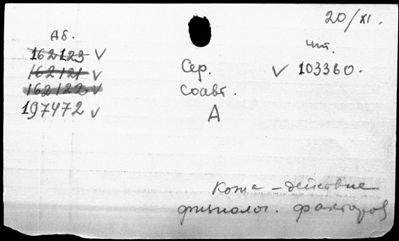 20/XI.
Аб.
чит.
162123 ✓
162121 ✓
162122 ✓
197472 ✓
Сер. ✓ 103360.
Соавт.
А
Кожа – действие
физиолог. факторов